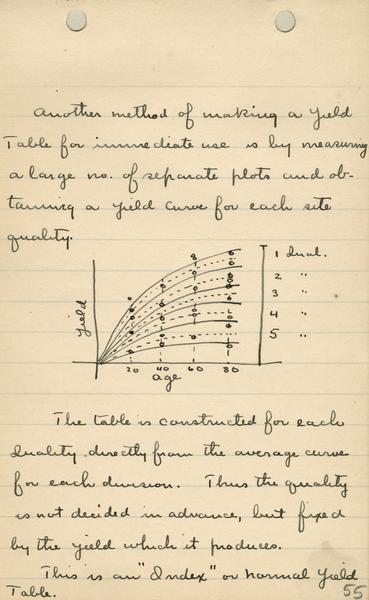 Another method of making a Yield
Table for immediate use is by measuring
a large no. of separate plots and ob-
taining a Yield Curve for each site
quality.
Yield
1 Qual.
2 "
3 "
4 "
5 "
20 40 60 80
age
The table is constructed for each
Quality, directly from the average curve
for each division. Thus the quality
is not decided in advance, but fixed
by the yield which it produces.
This is an "Index" or normal Yield
Table.
55